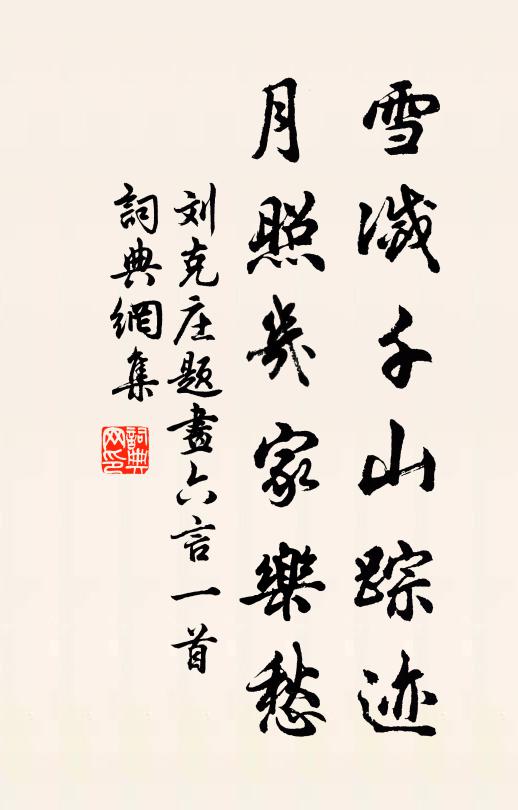 雪滅千山踪迹
月照幾家樂愁
刘克庄題畫六言一首
詞典網集
詞典網印